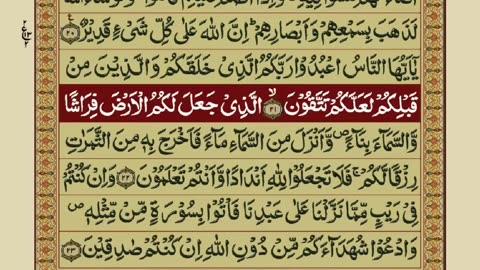 لَذَهَبَ بِسَمْعِهِمْ وَاَبْصَارِهِمْ ؕ اِنَّ اللّٰهَ عَلٰى كُلِّ شَیْءٍ قَدِیْرٌ ۟﴿۲۰﴾
یٰۤاَیُّهَا النَّاسُ اعْبُدُوْا رَبَّكُمُ الَّذِیْ خَلَقَكُمْ وَالَّذِیْنَ مِنْ
قَبْلِكُمْ لَعَلَّكُمْ تَتَّقُوْنَ ۙ﴿۲۱﴾ الَّذِیْ جَعَلَ لَكُمُ الْاَرْضَ فِرَاشًا
وَّالسَّمَآءَ بِنَآءً ۪ وَّاَنْزَلَ مِنَ السَّمَآءِ مَآءً فَاَخْرَجَ بِهٖ مِنَ الثَّمَرٰتِ
رِزْقًا لَّكُمْ ۚ فَلَا تَجْعَلُوْا لِلّٰهِ اَنْدَادًا وَّاَنْتُمْ تَعْلَمُوْنَ ﴿۲۲﴾ وَاِنْ كُنْتُمْ
فِیْ رَیْبٍ مِّمَّا نَزَّلْنَا عَلٰى عَبْدِنَا فَاْتُوْا بِسُوْرَةٍ مِّنْ مِّثْلِهٖ ۪
وَادْعُوْا شُهَدَآءَكُمْ مِّنْ دُوْنِ اللّٰهِ اِنْ كُنْتُمْ صٰدِقِیْنَ ﴿۲۳﴾